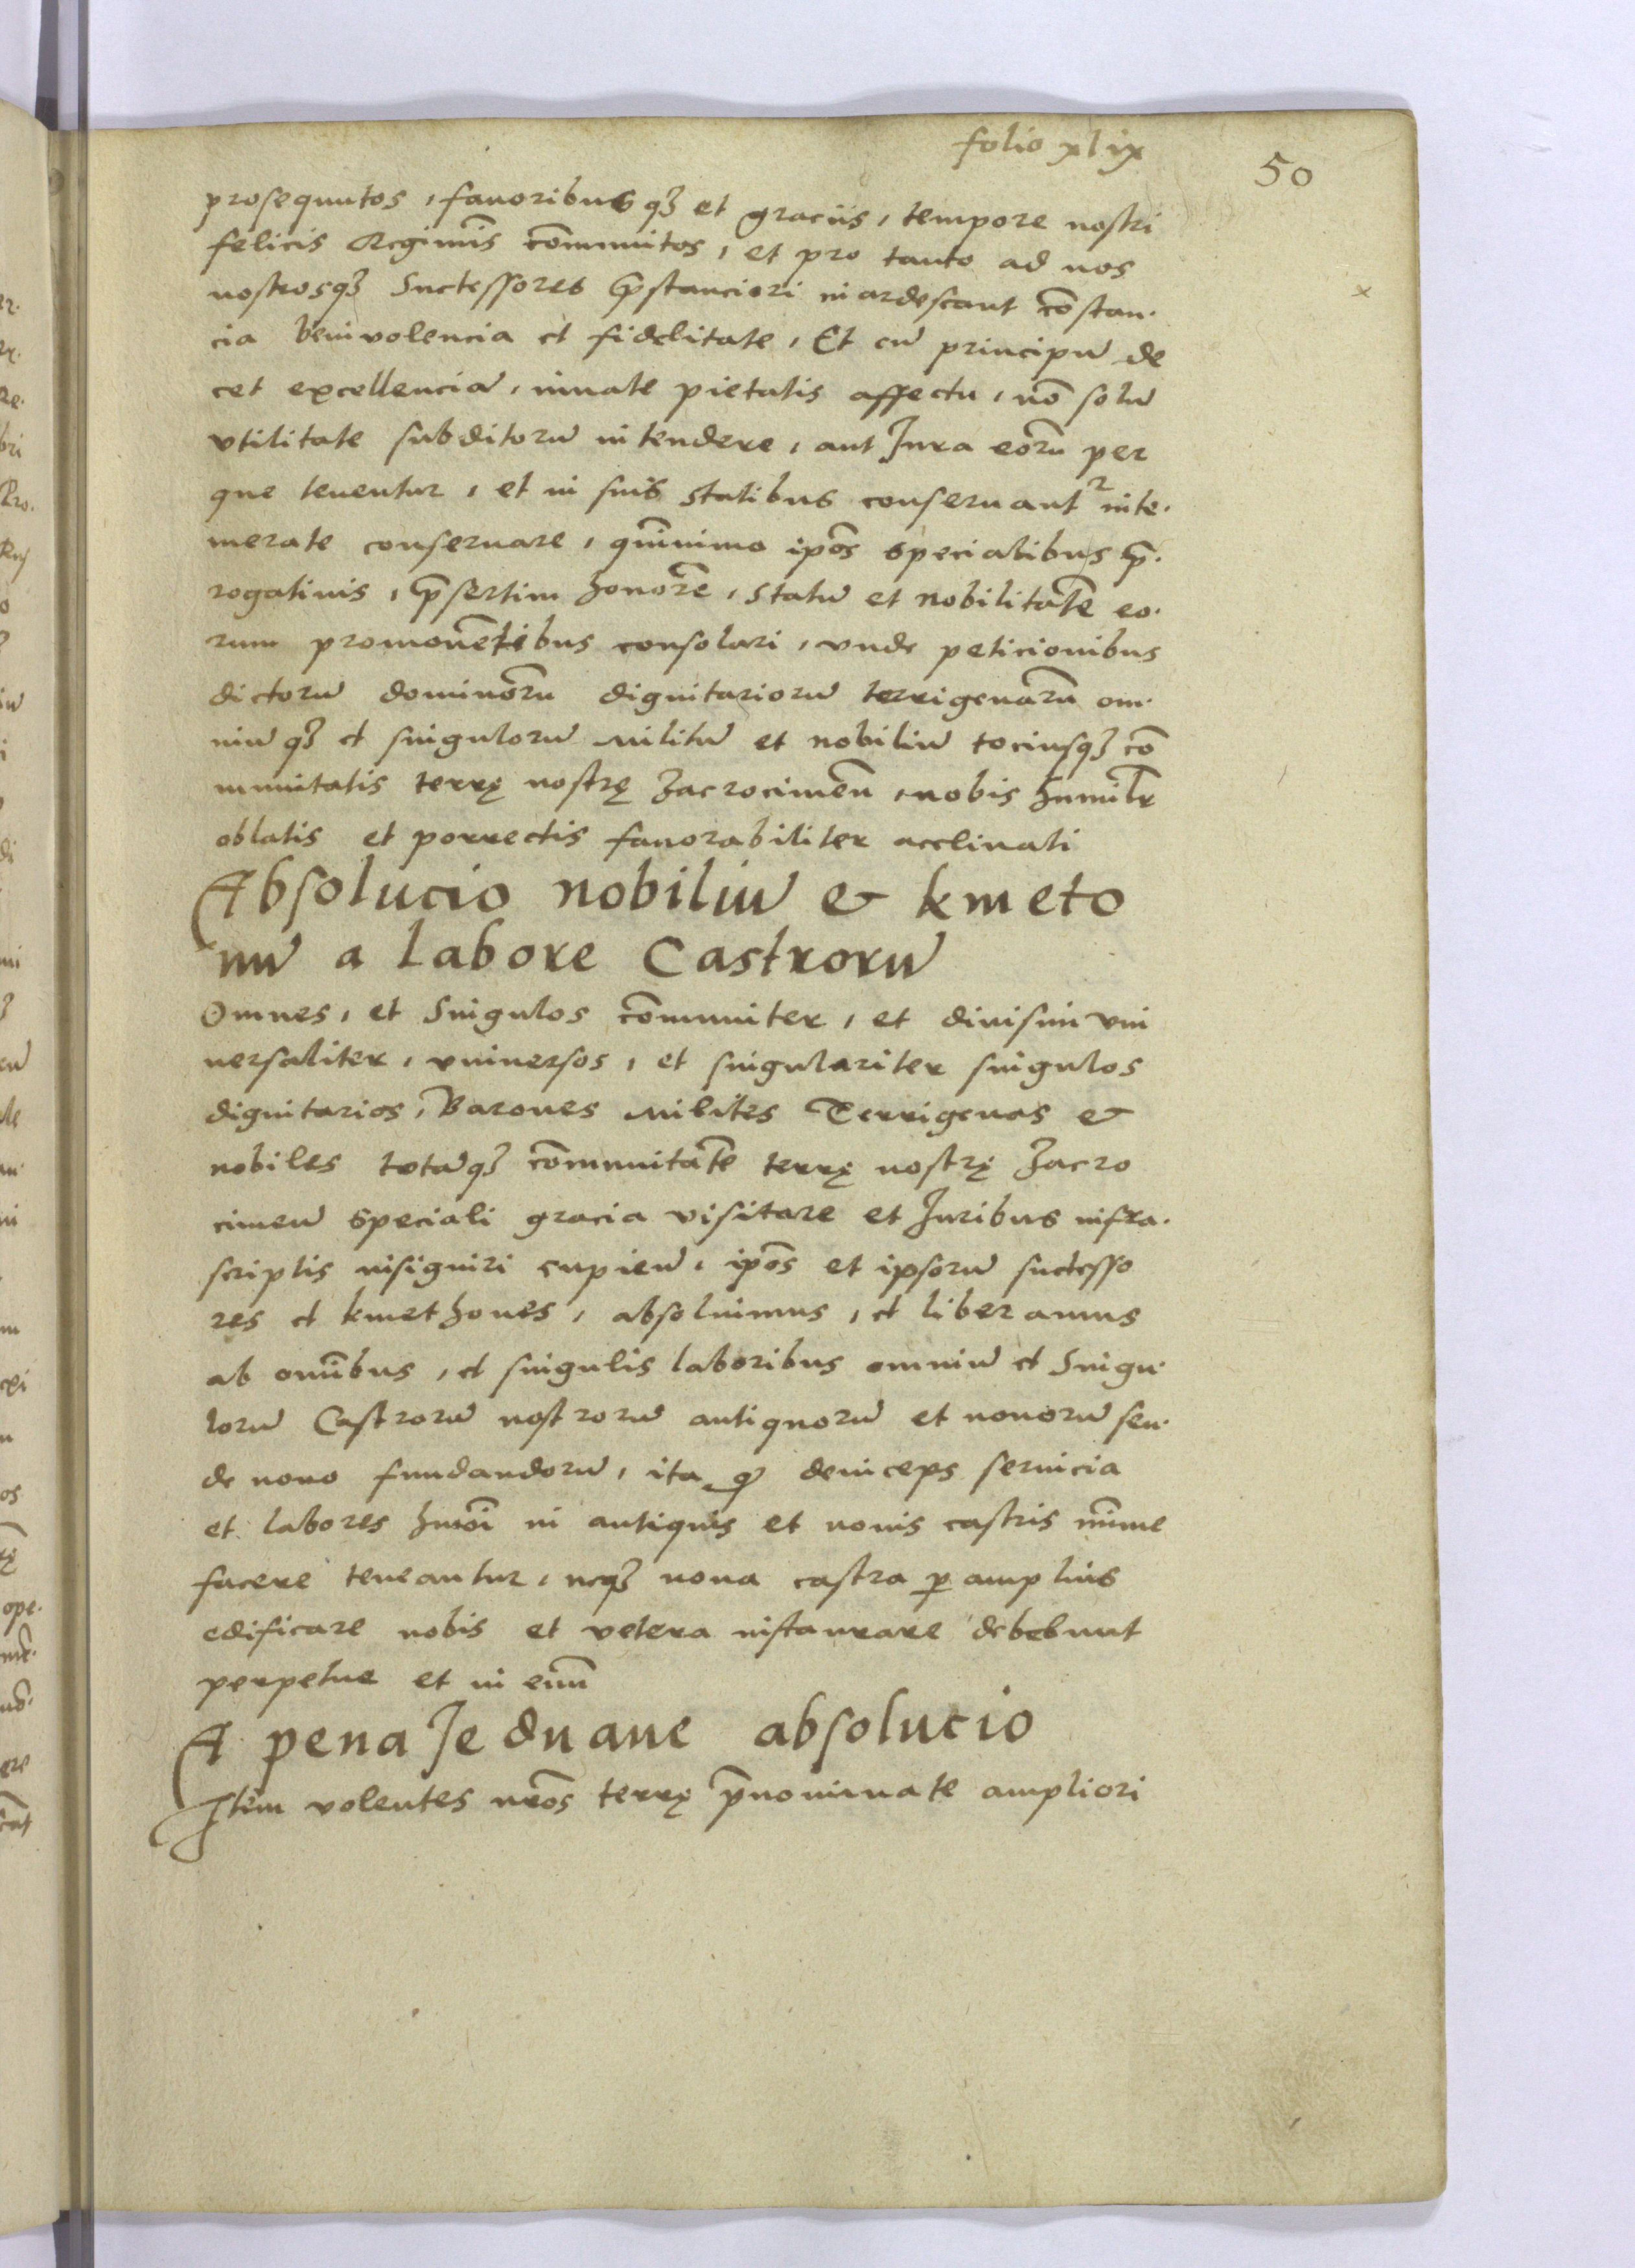 folio xlix
50
prosequutos, fauoribus qʒ et graciis, tempore nostri
felicis Regiminis com̄unitos, et pro tanto ad nos
nostrosqʒ Successores p̄stanciori inardescant co̅stan.
cia beniuolencia et fidelitate, Et cu̅ principu̅ de
cet excellencia̅, innate pietatis affectu, no̅ solu̅
vtilitate subditoru̅ intendere, aut Jura eoru̅ per
que tenentur, et in suis statibus conseruant² inte.
merate conseruare, qui̅nimo ip̅os specialibus p̅.
rogatiuis, p̅sertim honore̅, statu̅ et nobilitate̅ eo.
rum promoue̅tibus consolari, vnde peticionibus
dictoru̅ dominoru̅ dignitarioru̅ terrigenaru̅ om.
niu̅ qʒ et singuloru̅ militu̅ et nobiliu̅ tociusqʒ co̅
munitatis terrę nostrę Zacrocimen̅, nobis humilr̅
oblatis et porrectis fauorabiliter acclinati
Absolucio nobiliu̅ & kmeto
nu̅ a labore Castroru̅
Omnes, et Singulos com̅uniter, et diuisim vni
uersaliter, vniuersos, et singulariter singulos
dignitarios, Barones milites Terrigenas &
nobiles tota̅qʒ com̅unitate̅ terrę nostrę Zacro
cimen̅ speciali gracia visitare et Juribus infra.
scriptis insigniri cupien̅, ip̅os et ipsoru̅ successo
res et kmethones, absoluimus, et liberamus
ab om̅ibus, et singulis laboribus omniu̅ et Singu.
loru̅ Castroru̅ nostroru̅ antiquoru̅ et nouoru̅ seu.
de nouo fundandoru̅, ita q̅ deinceps seruicia
et labores hmo̅i in antiquis et nouis castris mi̅ime
facere teneantur, neqʒ noua castra ꝑ amplius
edificare nobis et vetera instaurare debebunt
perpetue et in eu̅m
A pena Jeduane absolucio
Item volentes nr̅os terrę p̅nominate ampliori